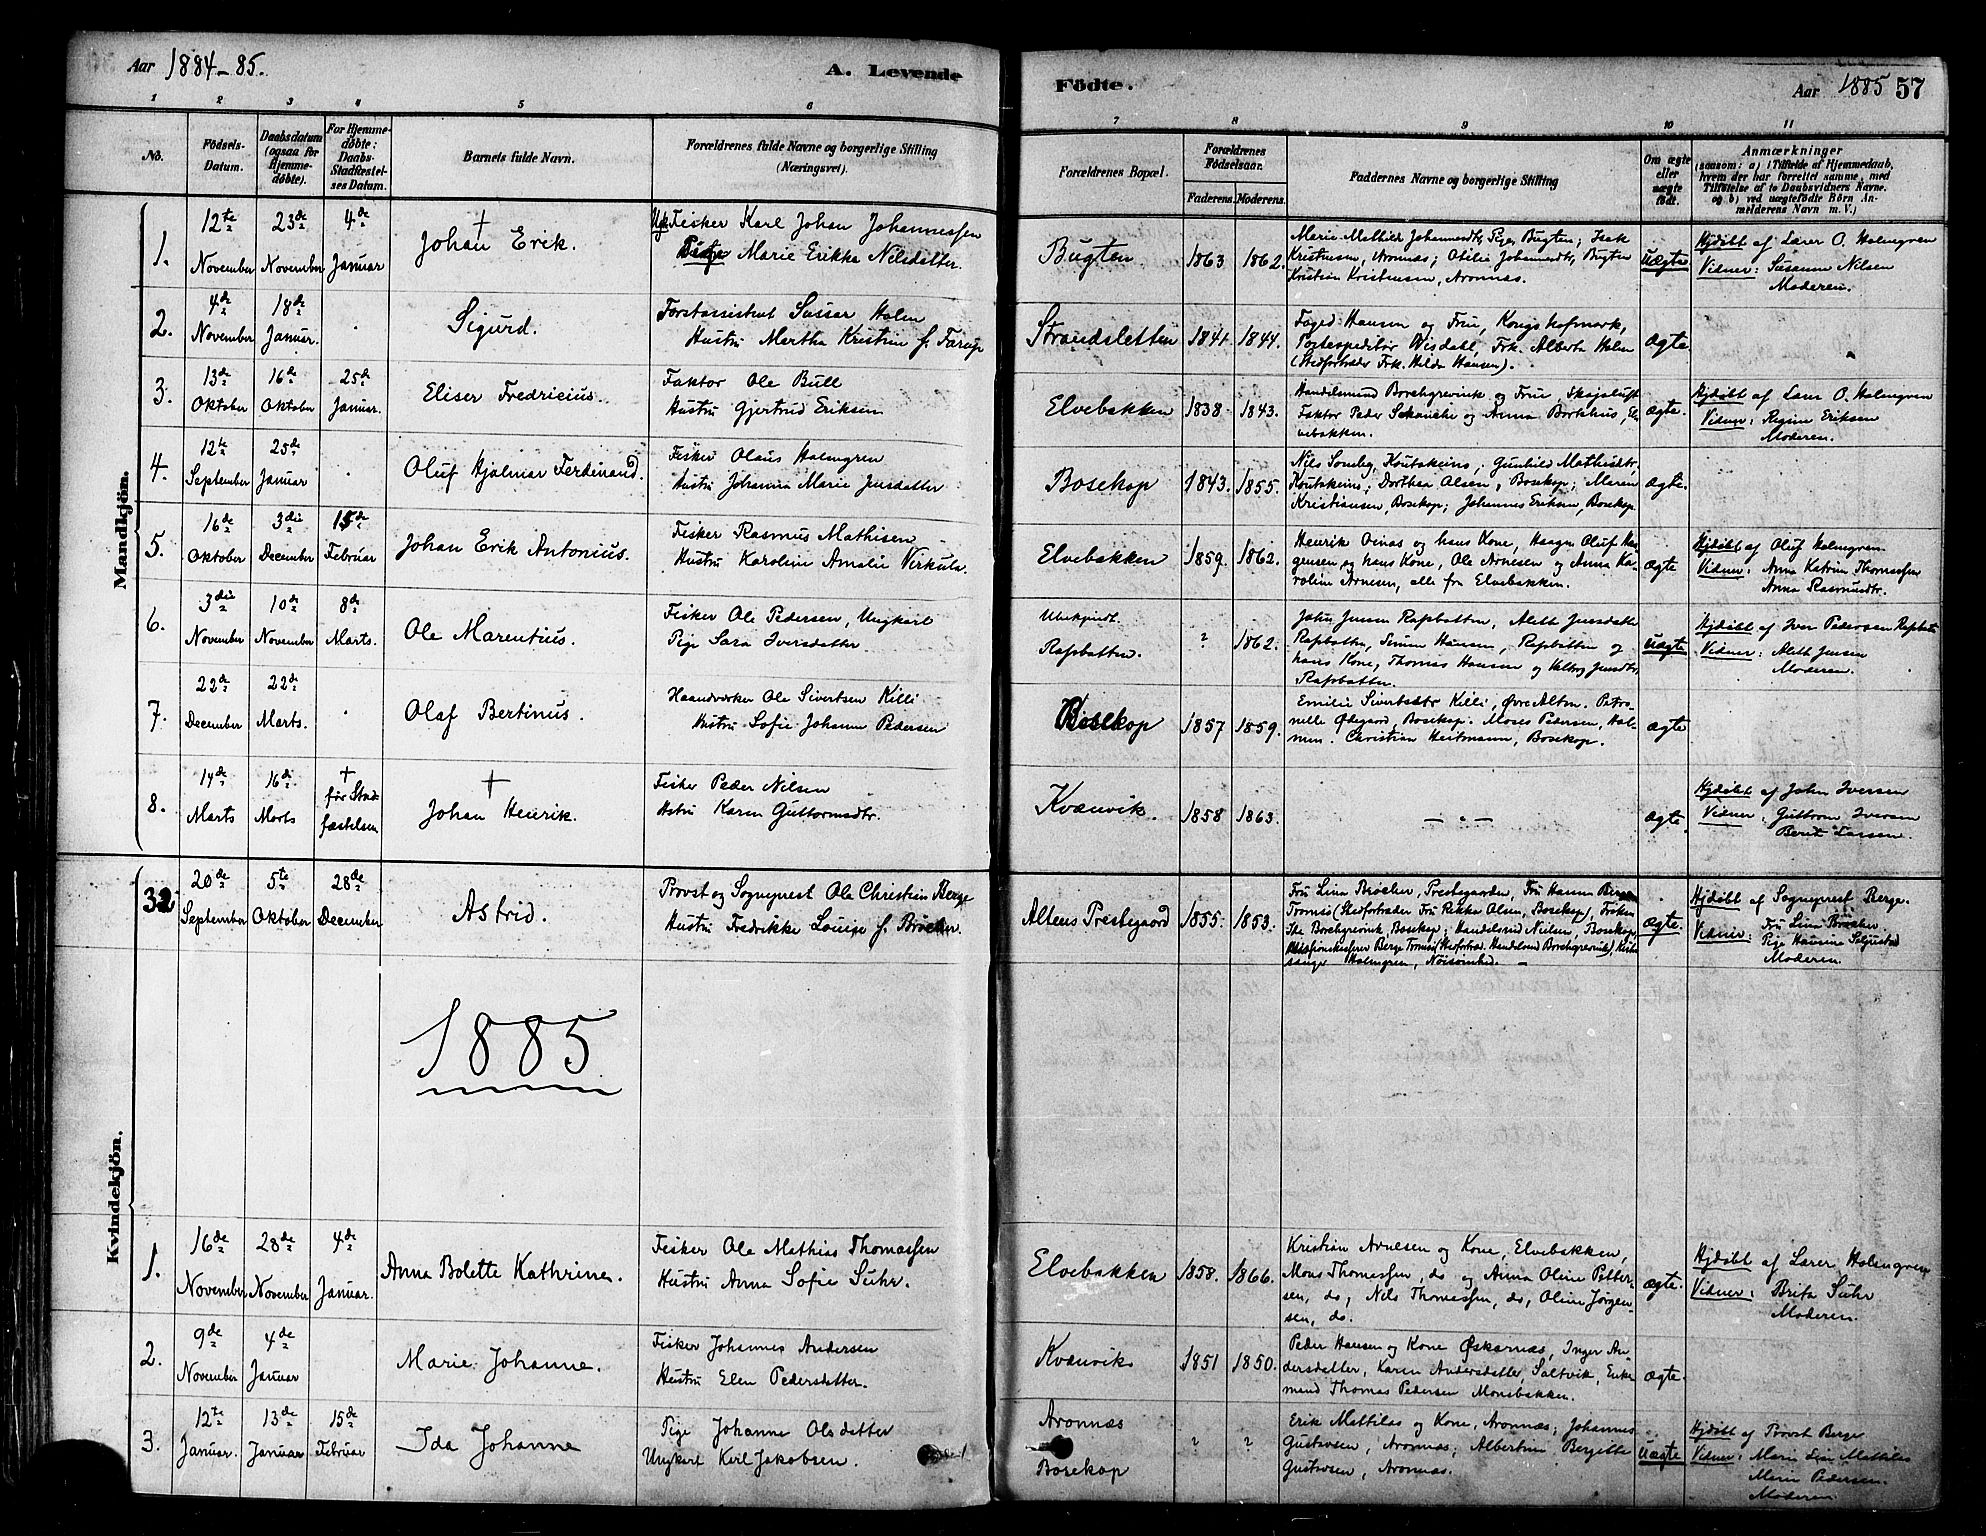 Aar 1884-85.
A. Levende
Födte.
Aar 1885 57
1 2 3 4 5 6 7 8 9 10 11
No.
Födsels-Datum.
Daabsdatum (ogsaa for Hjemme-döbte).
For Hjemme-døbte: Daabs-Stadfæstel-ses Datum.
Barnets fulde Navn.
Forældrenes fulde Navne og borgerlige Stilling (Næringsvei).
Forældrenes Bopæl.
Forældrenes Födselsaar.
Faderens. Moderens.
Faddernes Navne og borgerlige Stilling
Om ægte eller uægte födt.
Anmærkninger
(saasom: a) i Tilfælde af Hjemmedaab,
hvem der har forrettet samme, med
Tilföielse af to Daabsvidners Navne.
og b) ved uægtefödte Börn An-
melderens Navn m. V.)
Mandkjön.
1.
12te November
23de November
4de Januar
+
Johan Erik.
Ugk. Fisker Karl Johan Johannessen
Pige Marie Erikka Nilsdatter.
Bugten
1863
1862.
Marie Mathild Johannesdtr, Pige, Bugten; Isak
Kristensen, Aronnæs; Otilie Johannesdtr, Bugten
Kristian Kristensen, Aronnæs.
uægte
Hjdöbt af Lærer O. Holmgren
Vidner: Susanne Nilsen
Moderen.
2.
4de November
18de Januar.
Sigurd.
Forstassistent Sussar Holm
Hustru Martha Kristine f. Farup
Strandsletten
1841
1844.
Foged Hansen og Frue, Kongshofmark,
Postexpeditör Wisdahl, Frk. Alberta Holm
(Stedfortræder Frk. Hilda Hansen).
ægte
3.
13de Oktober
16de Oktober
25de Januar.
Eliser Fredricius.
Faktor Ole Bull
Hustru Gjertrud Eriksen
Elvebakken
1838
1843.
Handelsmand Borchgrevink og Frue,
Faktor Peder Schanche og Anna Borkhus, El-
vebakken.
ægte.
Hjdöbt af Lærer O. Holmgren
Vidner: Regine Eriksen
Moderen.
4.
12te September
25de Januar
Oluf Hjalmar Ferdinand.
Fisker Olaus Holmgren
Hustru Johanna Marie Jensdatter
Bosekop
1843.
1855.
Nils Somby, Koutokeino; Gunhild Mathisdtr.
Koutokeino; Dorthea Olsen, Bosekop; Maren
Kristiansen, Bosekop; Johannes Eriksen, Bosekop.
ægte.
5.
16de Oktober
3die December
15de Februar
Johan Erik Antonius.
Fisker Rasmus Mathisen
Hustru Karoline Amalie Virkula.
Elvebakken
1859.
1862.
Henrik Oinas og hans Kone, Haagen Oluf Haa-
gensen og hans Kone, Ole Arnesen og Anna Ka-
roline Arnesen, alle fra Elvebakken.
ægte
Hjdöbt af Oluf Holmgren
Vidner: Anna Katrine Thomassen
Anna Rasmusdtr.
6.
3die November
10de November
8de Marts.
Ole Marentius.
Fisker Ole Pedersen, Ungkarl
Pige Sara Iversdatter.
Ubekjendt.
Rafsbatten.
?
1862.
John Jensen Rafsbatten, Aleth Jensdatter
Rafsbatten, Simon Hansen, Rafsbatten og
hans Kone, Thomas Hansen og Valborg Jensdtr,
Rafsbatten.
uægte
Hjdöbt af Iver Pedersen Rafsbatten
Vidner: Aleth Jensen
Moderen.
7.
22de December
22de Marts.
Olaf Bertinus.
Haandværker Ole Sivertsen Killi
Hustru Sofie Johanne Pedersen
Bosekop
1857
1859.
Emilie Sivertsdtr Killi, Øvre Alten. Petro-
nelle Ødegaard, Bosekop. Moses Pedersen, Hol-
men. Christian Heitmann, Bosekop.
ægte
8.
14de Marts
16de Marts
+ för Stad-
fæstelsen
+
Johan Henrik.
Fisker Peder Nilsen
Hstru Karen Guttormsdtr.
Kvænvik.
1858
1863.
— " —
ægte.
Hjdöbt af John Iversen
Vidner: Guttorm Iversen
Berit Larsen.
Kvindekjön.
32
20de September
5te Oktober
28de December
Astrid.
Provst og Sogneprest Ole Christian Berge
Hustru Fredrikke Louise f. Bröcher.
Altens Prestegaard
1855.
1853.
Fru Lina Bröcher, Prestegaarden, Fru Hanna Berge
Tromsö (Stedfortræder Fru Rikka Olsen, Bosekop), Fröken
Borchgrevink Bosekop; Handelsmd Nielsen, Bosekop,
Berge Tromsö (Stedfortræd. Handelsmd Borchgrevink), Kirke-
sanger Holmgren, Nöisomhed. —
ægte.
Hjdöbt af Sogneprest Berge.
Vidner: Fru Lina Bröcher.
Pige Hansine
Moderen.
1885
1.
16de November
28de November
4de Januar.
Anna Bolette Kathrine.
Fisker Ole Mathias Thomassen
Hustru Anna Sofie Suhr.
Elvebakken
1858.
1866.
Kristian Arnesen og Kone, Elvebakken,
Mons Thomassen, do og Anna Oline Petter-
sen, do, Nils Thomassen, do, Oline Jörgen-
sen, do.
ægte.
Hjdöbt af Lærer Holmgren
Vidner: Brita Suhr
Moderen.
2.
9de November
4de Januar
Marie Johanne.
Fisker Johannes Andersen
Hustru Elen Pedersdatter.
Kvænvik
1851
1850.
Peder Hansen og Kone Øskarnæs, Inger An-
dersdatter, Karen Andersdatter, Saltvik, Enke-
mand Thomas Pedersen Monsbakken.
ægte.
3.
12te Januar.
13de Januar
15de Februar
Ida Johanne
Pige Johanne Olsdatter
Ungkarl Karl Jakobsen.
Aronnæs
Bosekop
?
?
Erik Mattilas og Kone, Aronnæs; Johannes
Gustavsen, Aronnæs; Albertine Bergitte
Gustavsen, Aronnæs.
uægte
Hjdöbt af Provst Berge
Vidner: Marie Lisa Mathilas
Marie Pedersen.
Moderen.